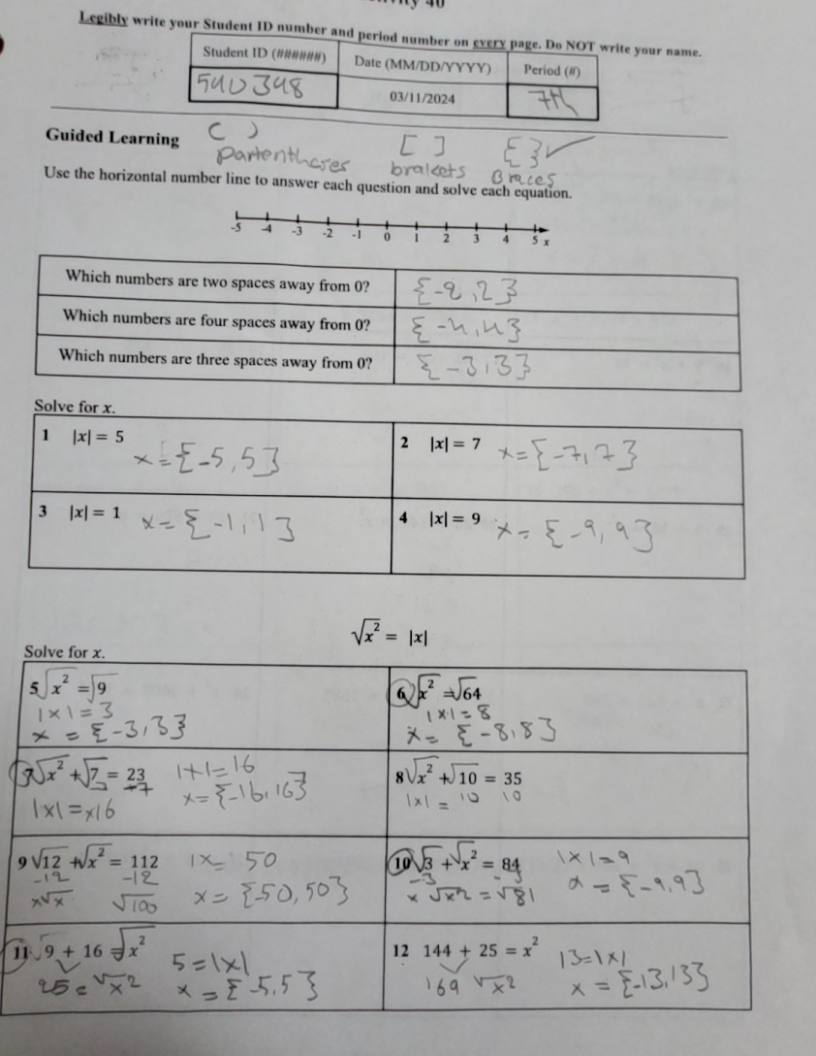 Legibly write your Student ID number and period number on every page. Do NOT write your name.
Student ID (######) Date (MM/DD/YYYY) Period (#)
540348 03/11/2024 7th
Guided Learning ( ) [ ] { }✓
partentheses brakets Braces
Use the horizontal number line to answer each question and solve each equation.
-5 -4 -3 -2 -1 0 1 2 3 4 5 x
Which numbers are two spaces away from 0? {-2,2}
Which numbers are four spaces away from 0? {-4,4}
Which numbers are three spaces away from 0? {-3,3}
Solve for x.
1 |x| = 5 x={-5,5}
2 |x| = 7 x={-7,7}
3 |x| = 1 x={-1,1}
4 |x| = 9 x={-9,9}
√x² = |x|
Solve for x.
5 √x² = √9
|x|=3
x={-3,3}
6 √x² = √64
|x|=8
x={-8,8}
7 √x² + √7 = 23 |+|=16
-7 x={-16,16}
|x|=x16
8 √x² + √10 = 35
|x|= 10 10
9 √12 + √x² = 112 |x= 50
-12 -12
x√x √100 x={-50,50}
10 √3 + √x² = 84 |x|=9
-3 -3
x √x2 = √81 x={-9,9}
11 √9 + 16 = √x² 5=|x|
25=√x2 x={-5,5}
12 144 + 25 = x² 13=|x|
169 √x2 x={-13,13}